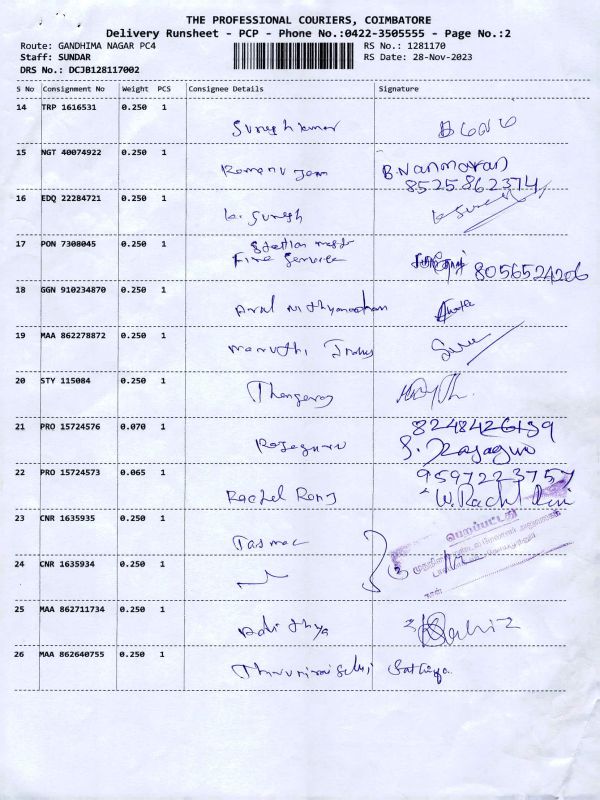 THE PROFESSIONAL COURIERS, COIMBATORE
Delivery Runsheet - PCP - Phone No.:0422-3505555 - Page No.:2
Route: GANDHIMA NAGAR PC4 RS No.: 1281170
Staff: SUNDAR RS Date: 28-Nov-2023
DRS No.: DCJB128117002
S No Consignment No Weight PCS Consignee Details Signature
14 TRP 1616531 0.250 1
Suresh kumar
15 NGT 40074922 0.250 1
Ramanujam B.Nanmaran
8525862374
16 EDQ 22284721 0.250 1
k. Suresh k Suresh
17 PON 7308045 0.250 1
Station
Fire Service 8056524206
18 GGN 910234870 0.250 1
19 MAA 862278872 0.250 1
maruthi
20 STY 115084 0.250 1
Thangaraj
21 PRO 15724576 0.070 1 8248426139
Rajaguru S. Rajaguru
22 PRO 15724573 0.065 1 9597223757
Rachel Rani W.Rachel Rani
23 CNR 1635935 0.250 1
Tasmac
பெறப்பட்டது
24 CNR 1635934 0.250 1
நாள்
25 MAA 862711734 0.250 1
Adithya
26 MAA 862640755 0.250 1
Sathiya